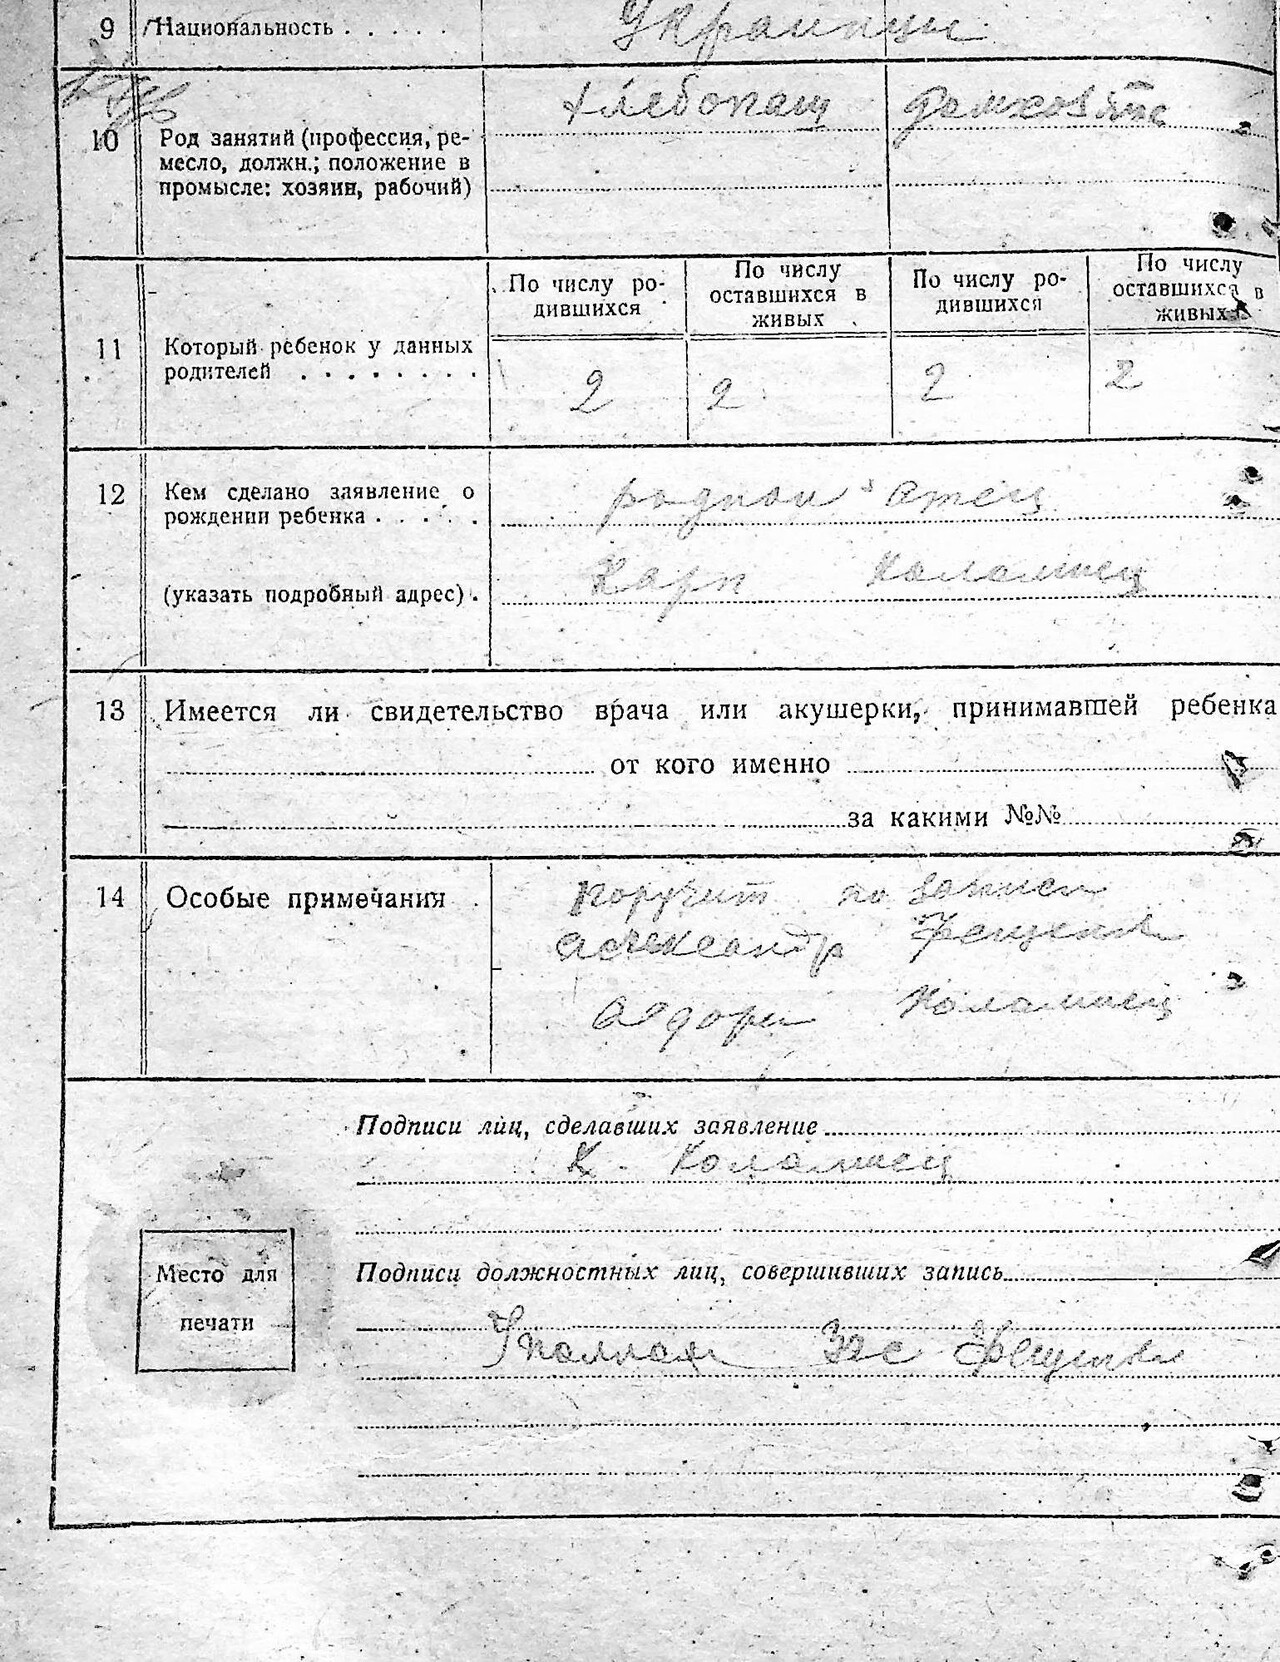 9 Национальность . . . . . Украинцы
хлебопащ домхозяйс
10 Род занятий (профессия, ре-
месло, должн.; положение в
промысле: хозяин, рабочий)
По числу ро-
дившихся
По числу
оставшихся в
живых
По числу ро-
дившихся
По числу
оставшихся в
живых
11 Который ребенок у данных
родителей . . . . . . . .
2 2 2 2
12 Кем сделано заявление о
рождении ребенка . . . . . родной отец
(указать подробный адрес) . Карп Коломиец
13 Имеется ли свидетельство врача или акушерки, принимавшей ребенка
от кого именно
за какими №№
14 Особые примечания . поручит по записи
Александр
Коломиец
Подписи лиц, сделавших заявление
К. Коломиец
Место для
печати
Подписи должностных лиц, совершивших запись
Загс